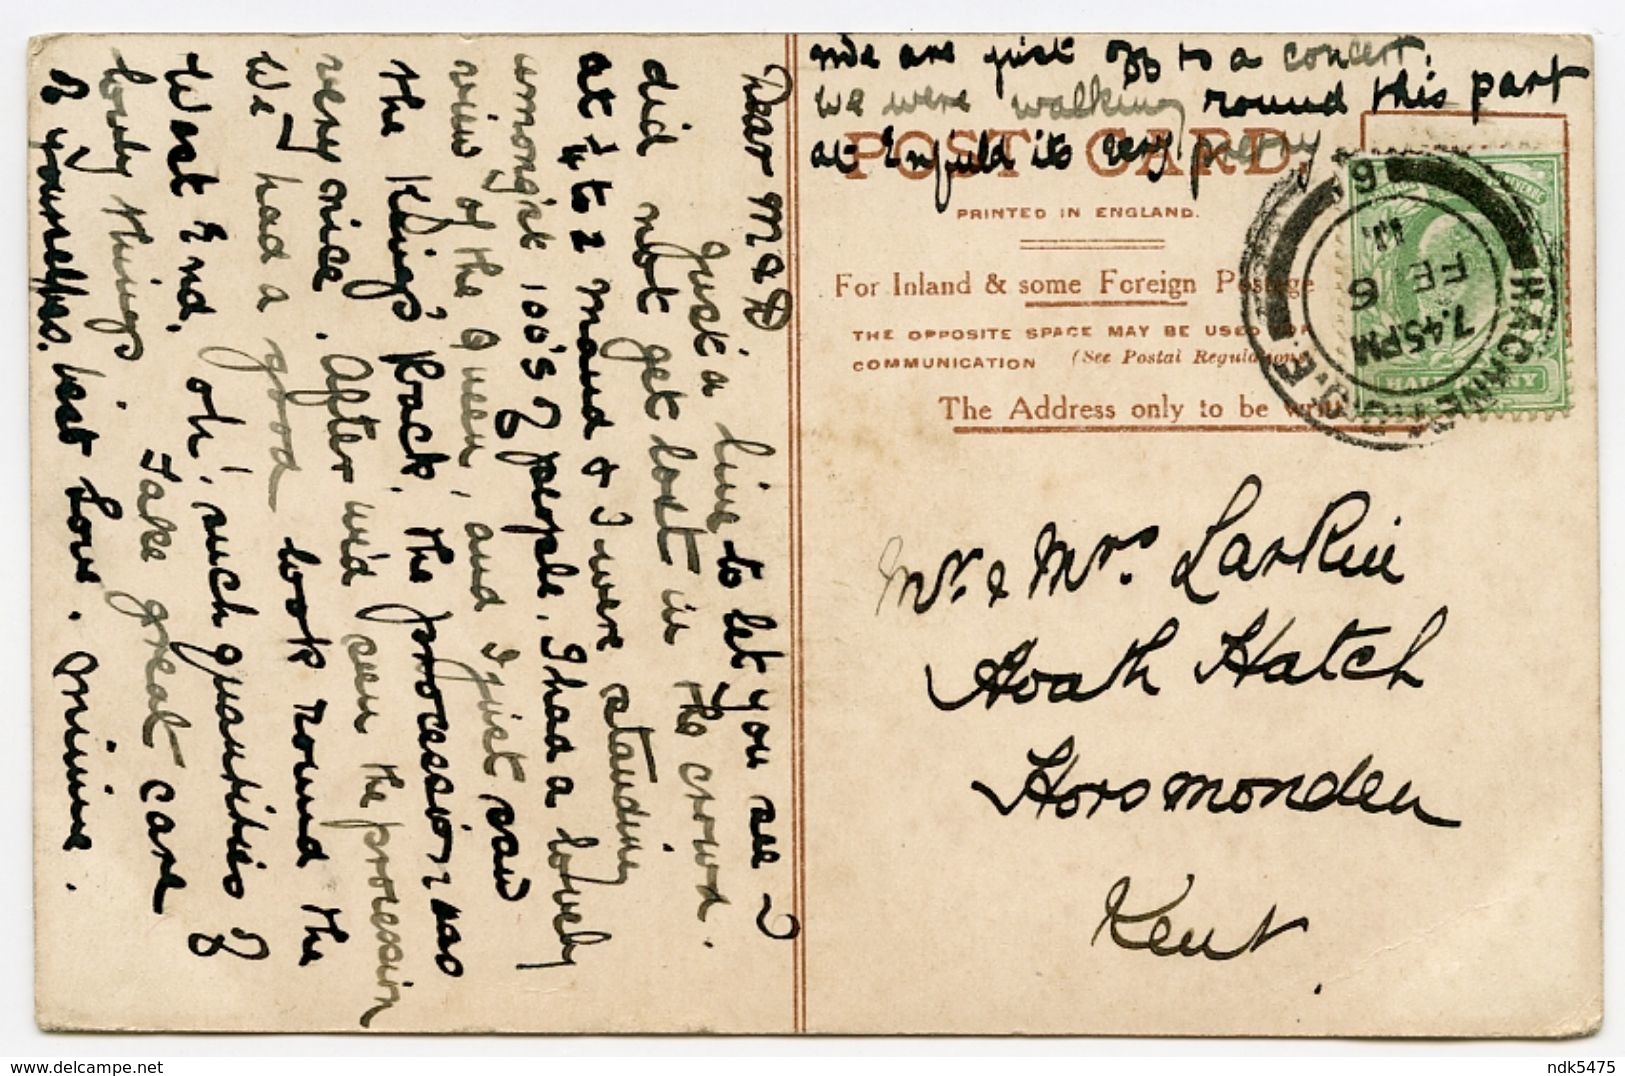 Dear M & D.
Just a line to let you see I
did not get lost in the crowd.
at ¼ to 2 Maud & I were standing
amongst 100's of people, I had a lovely
view of the Queen, and I just saw
the King's back, the procession was
very nice. After we'd seen the procession
We had a good look round the
West End, oh, such quantities of
lovely things. Take great care
of yourselves. best Love. Minnie.
We are just off to a concert.
we were walking round this part
at Enfield its very pretty
POST CARD.
PRINTED IN ENGLAND.
For Inland & some Foreign Postage
THE OPPOSITE SPACE MAY BE USED FOR
COMMUNICATION (See Postal Regulations)
The Address only to be writ
HALFPENNY
HACKNEY
7.45 PM
FE 6
11
Mr. & Mrs. Larkin
Hoath Hatch
Horsmonden
Kent.
delcampe.net
ndk5475